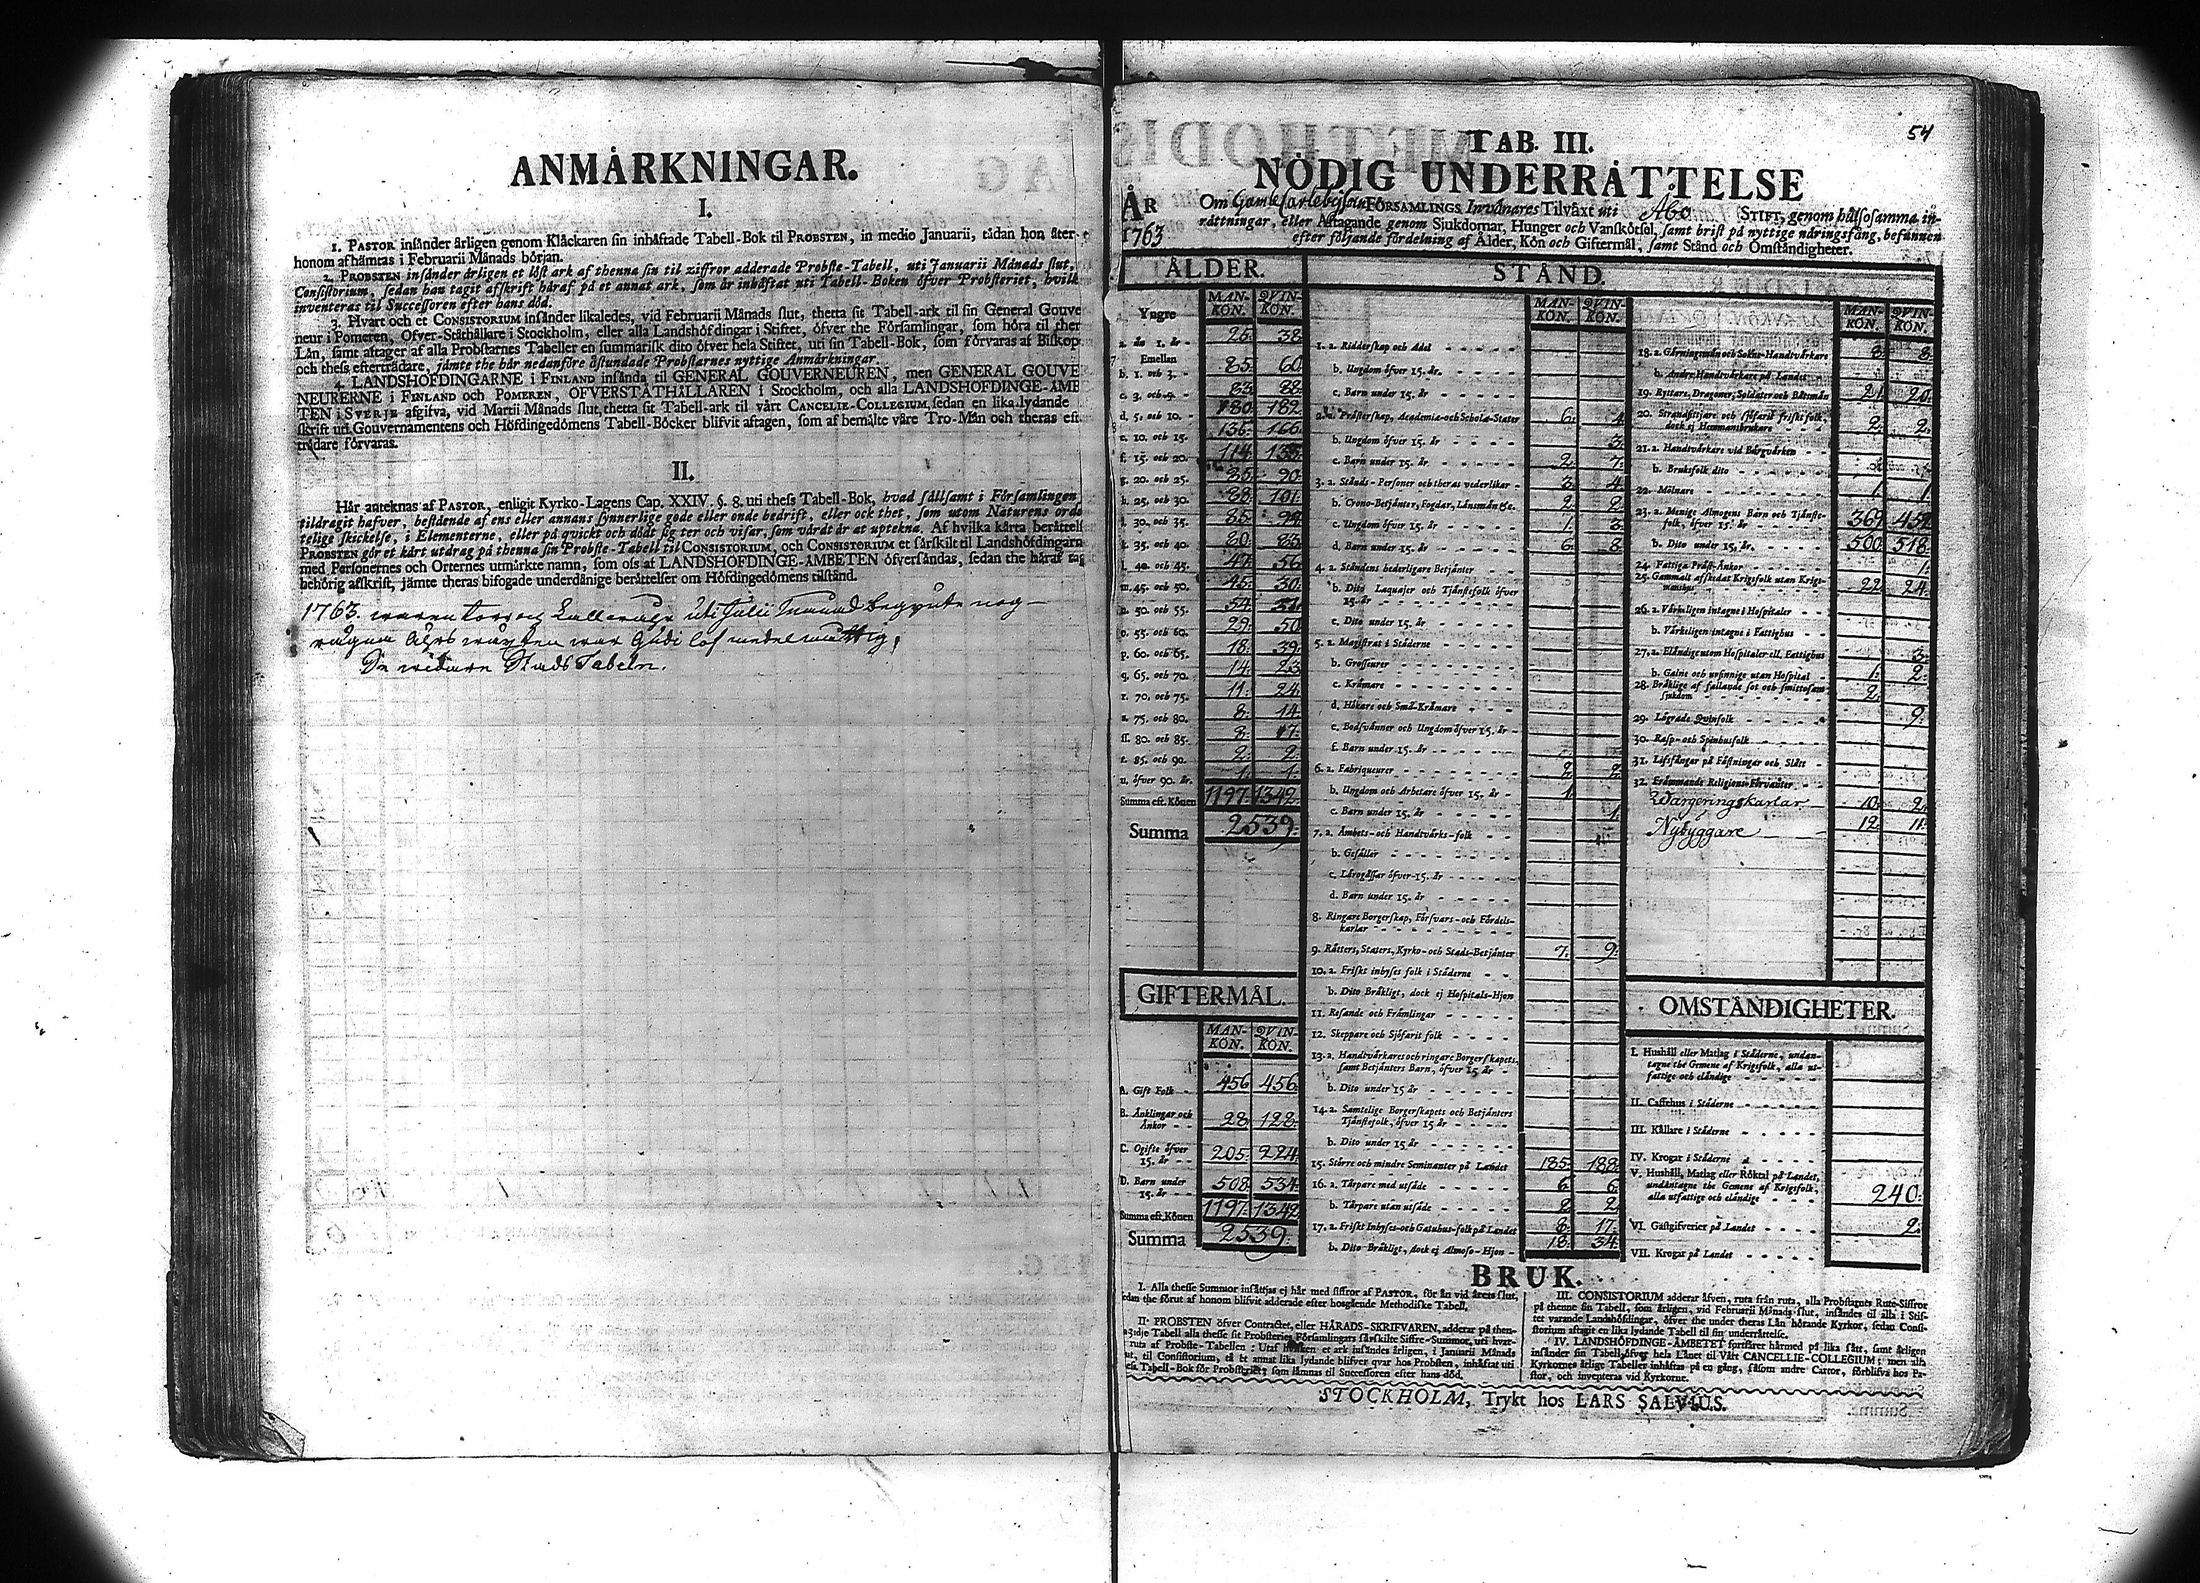 ANMÅRKNINGAR.
I.
1. PASTOR insånder årligen genom Klåckaren sin inhåftade Tabell-Bok til PROBSTEN, in medio Januarii, tådan hon åter
honom afhåmtas i Februarii Månads början.
2. PROBSTEN insånder årligen et löst ark af thenna sin til ziffror adderade Probste-Tabell, uti Januarii Månads slut,
Consistorium, sedan han tagit afskrift håraf på et annat ark, som år inhåftat uti Tabell-Boken öfver Probsteriet, hvilk
inventeras til Successoren efter hans död.
3. Hvart och et CONSISTORIUM insånder likaledes, vid Februarii Månads slut, thetta sit Tabell-ark til sin General Gouve
neur i Pomeren, Öfver-Ståthållare i Stockholm, eller alla Landshöfdingar i Stiftet, öfver the Församlingar, som höra til ther
Lån, samt aftager af alla Probstarnes Tabeller en summarisk dito öfver hela Stiftet, uti sin Tabell-Bok, som förvaras af Biskop
och thess eftertrådare, jåmte the hår nedanföre åstundade Probstarnes nyttige Anmårkningar.
4. LANDSHÖFDINGARNE i FINLAND insånda til GENERAL GOUVERNEUREN, men GENERAL GOUVE
NEURERNE i FINLAND och POMEREN, ÖFVERSTÅTHÅLLAREN i Stockholm, och alla LANDSHÖFDINGE-ÅMB
TEN i SVERJE afgifva, vid Martii Månads slut, thetta sit Tabell-ark til vårt CANCELIE-COLLEGIUM, sedan en lika lydande
skrift uti Gouvernamentens och Höfdingedömens Tabell-Böcker blifvit aftagen, som af bemålte våre Tro-Mån och theras eft
trådare förvaras.
II.
Hår anteknas af PASTOR, enligit Kyrko-Lagens Cap. XXIV §. 8. uti thess Tabell-Bok, hvad sållsamt i Församlingen
tildragit hafver, bestående af ens eller annans synnerlige gode eller onde bedrift, eller ock thet, som utom Naturens orde
telige skickelse, i Elementerne, eller på qvickt och dödt sig ter och visar, som vårdt år at uptekna. Af hvilka kårta beråttels
PROBSTEN gör et kårt utdrag på thenna sin Probste-Tabell til CONSISTORIUM, och CONSISTORIUM et sårskilt til Landshöfdingarn
med Personernes och Orternes utmårkte namn, som ofs af LANDSHÖFDINGE-ÅMBETEN öfversåndas, sedan the håraf tag
behörig afskrift, jåmte theras bifogade underdånige beråttelser om Höfdingedömens tilstånd.
1763.
54
TAB. III.
NÖDIG UNDERRÅTTELSE
ÅR 1763 Om Gamle Carleby FÖRSAMLINGS Invånares Tilvåxt uti Åbo STIFT, genom hålsosamma in-
råttningar, eller Aftagande genom Sjukdomar, Hunger och Vanskötsel, samt brist på nyttige nåringsfång, befunnen
efter följande fördelning af Ålder, Kön och Giftermål, samt Stånd och Omståndigheter.
ÅLDER.
MAN-KÖN. QVIN-KÖN.
Yngre
a. ån 1. år 25: 38
Emellan
b. 1. och 3. 85: 60
c. 3. och 5. 83: 88
d. 5. och 10. 180: 182
e. 10. och 15. 135: 166
f. 15. och 20. 114: 135
g. 20. och 25. 85: 90
h. 25. och 30. 88: 101
i. 30. och 35. 85: 99
k. 35. och 40. 80: 83
l. 40. och 45. 47: 56
m. 45. och 50. 45: 30
n. 50. och 55. 54:
o. 55. och 60. 29: 50
p. 60. och 65. 18: 39
q. 65. och 70. 14: 23
r. 70. och 75. 11: 24
s. 75. och 80. 8: 14
ss. 80. och 85. 8:
t. 85. och 90. 2: 2
u. öfver 90. år. 1: 1
Summa eft. Könen 1197 1342
Summa 2539
GIFTERMÅL.
MAN-KÖN. QVIN-KÖN.
A. Gift Folk 456 456
B. Ånklingar och Ånkor 28 128
C. Ogifte öfver 15. år 205: 224
D. Barn under 15. år 508 534
Summa eft. Könen 1197 1342
Summa 2539
STÅND.
MAN-KÖN. QVIN-KÖN.
1. a. Ridderskap och Adel
b. Ungdom öfver 15. år.
c. Barn under 15. år
2. a. Pråsterskap, Academia- och Schola-Stater 6: 4
b. Ungdom öfver 15. år 3:
c. Barn under 15. år 2: 7:
3. a. Stånds-Personer och theras vederlikar 3: 4
b. Crono-Betjånter, Fogdar, Lånsmån &c. 2: 2
c. Ungdom öfver 15. år 1: 3:
d. Barn under 15. år 6: 8
4. a. Ståndens hederligare Betjånter
b. Dito Laquajer och Tjånstefolk öfver 15. år
c. Dito under 15. år
5. a. Magistrat i Ståderne
b. Grosseurer
c. Kråmare
d. Hökare och Små-Kråmare
e. Bodsvånner och Ungdom öfver 15. år
f. Barn under 15. år
6. a. Fabriqueurer 2 2
b. Ungdom och Arbetare öfver 15. år 1
c. Barn under 15. år 1
7. a. Åmbets- och Handtvårks-folk
b. Gesåller
c. Lårogåssar öfver 15. år
d. Barn under 15. år
8. Ringare Borgerskap, Försvars- och Fördels-karlar
9. Råtters, Staters, Kyrko- och Stads-Betjånter 7: 9
10. a. Friskt inhyses folk i Ståderne
b. Dito Bråkligt, dock ej Hospitals-Hjon
11. Resande och Fråmlingar
12. Skeppare och Sjöfarit folk
13. a. Handtvårkares och ringare Borgerskapets, samt Betjånters Barn, öfver 15 år
b. Dito under 15 år
14. a. Samtelige Borgerskapets och Betjånters Tjånstefolk, öfver 15 år
b. Dito under 15 år
15. Större och mindre Seminanter på Landet 185: 188
16. a. Torpare med utsåde 6 6
b. Torpare utan utsåde 2 2
17. a. Friskt Inhyses- och Gatuhus-folk på Landet 8: 17:
b. Dito Bråkligt, dock ej Almoso-Hjon 18: 34
MAN-KÖN. QVIN-KÖN.
18. a. Gårningsmån och Sokne-Handtvårkare 8: 8
b. Andre Handtvårkare på Landet
19. Ryttare, Dragoner, Soldater och Båtsmån 21: 20
20. Strandsittjare och sjöfarit friskt folk, dock ej Hemmansbrukare 2: 2
21. a. Handtvårkare vid Bårgvårken
b. Bruksfolk dito
22. Mölnare 1 1
23. a. Menige Almogens Barn och Tjånste-folk, öfver 15. år 369
b. Dito under 15. år. 500 518
24. Fattiga Pråst-Ånkor 1:
25. Gammalt afskedat Krigsfolk utan Krigsmanshus 22 24
26. a. Vårkeligen intagne i Hospitaler
b. Vårkeligen intagne i Fattighus
27. a. Elåndige utom Hospitaler ell. Fattighus 3:
b. Galne och ursinnige utan Hospital 1: 2:
28. Bråklige af fallande sot och smittosam sjukdom 2:
29. Lågrade Qvinfolk 9:
30. Rasp- och Spinhusfolk
31. Lifsfångar på Fåstningar och Slått
32. Fråmmande Religions-Förvanter
Wargeringskarlar 10: 2
Nybyggare 12: 11
OMSTÅNDIGHETER.
I. Hushåll eller Matlag i Ståderne, undan-tagne the Gemene af Krigsfolk, alla ut-fattige och elåndige
II. Caffehus i Ståderne
III. Kållare i Ståderne
IV. Krogar i Ståderne
V. Hushåll, Matlag eller Röktal på Landet, undåntagne the Gemene af Krigsfolk, alla utfattige och elåndige 240:
VI. Gåstgifverier på Landet 2:
VII. Krogar på Landet
BRUK.
I. Alla thesse Summor insåttjas ej hår med siffror af PASTOR, för ån vid årets slut,
sedan the förut af honom blifvit adderade efter hosgående Methodiske Tabell.
II. PROBSTEN öfver Contractet, eller HÅRADS-SKRIFVAREN, adderar på then-
a 3:dje Tabell alla thesse sit Probsteries Församlingars sårskilte Siffre-Summor, uti hvar-
ruta af Probste-Tabellen: Utaf hvilken et ark insåndes årligen, i Januarii Månads
ut, til Consistorium, tå et annat lika lydande blifver qvar hos Probsten, inhåftat uti
es. Tabell-Bok för Probsteriet; som låmnas til Successoren efter hans död.
III. CONSISTORIUM adderar åfven, ruta från ruta, alla Probstarnes Rute-Siffror
på thenne sin Tabell, som årligen, vid Februarii Månads slut, insåndes til alla i Stif-
tet varande Landshöfdingar, öfver the under theras Lån hörande Kyrkor, sedan Consi-
storium aftagit en lika lydande Tabell til sin underråttelse.
IV. LANDSHÖFDINGE-ÅMBETET fortfårer hårmed på lika sått, samt årligen
insånder sin Tabell öfver hela Lånet til Vårt CANCELLIE-COLLEGIUM; men alla
Kyrkornes årlige Tabeller inhåftas på en gång, såsom andre Cartor, förblifva hos Pa-
stor, och inventeras vid Kyrkorne.
STOCKHOLM, Trykt hos LARS SALVIUS.